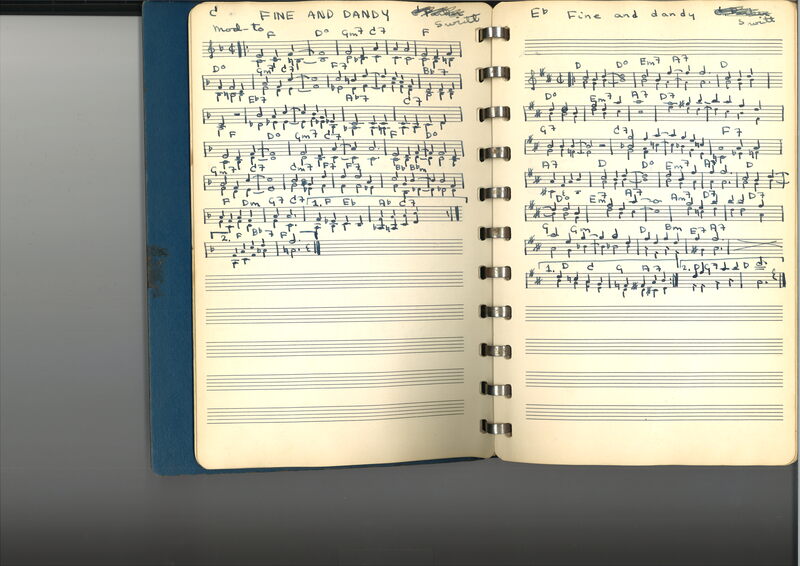 C FINE AND DANDY
Swift
Mod-to F D° Gm7 C7 F
D° Gm7 C7 F7 Bb7
Eb7 Ab7 C7
F D° Gm7 C7 F D°
Gm7 C7 Cm7 F7 F7 Bb Bbm
F Dm G7 C7 1. F Eb Ab C7
2. F Bb7 F
Eb Fine and dandy
Swift
D D° Em7 A7 D
D° Em7 A7 D7
G7 C7 F7
A7 D D° Em7 A7 D
D° Em7 A7 Am7 D7 D7
G Gm D Bm E7 A7
1. D C G A7 2. D G7 D